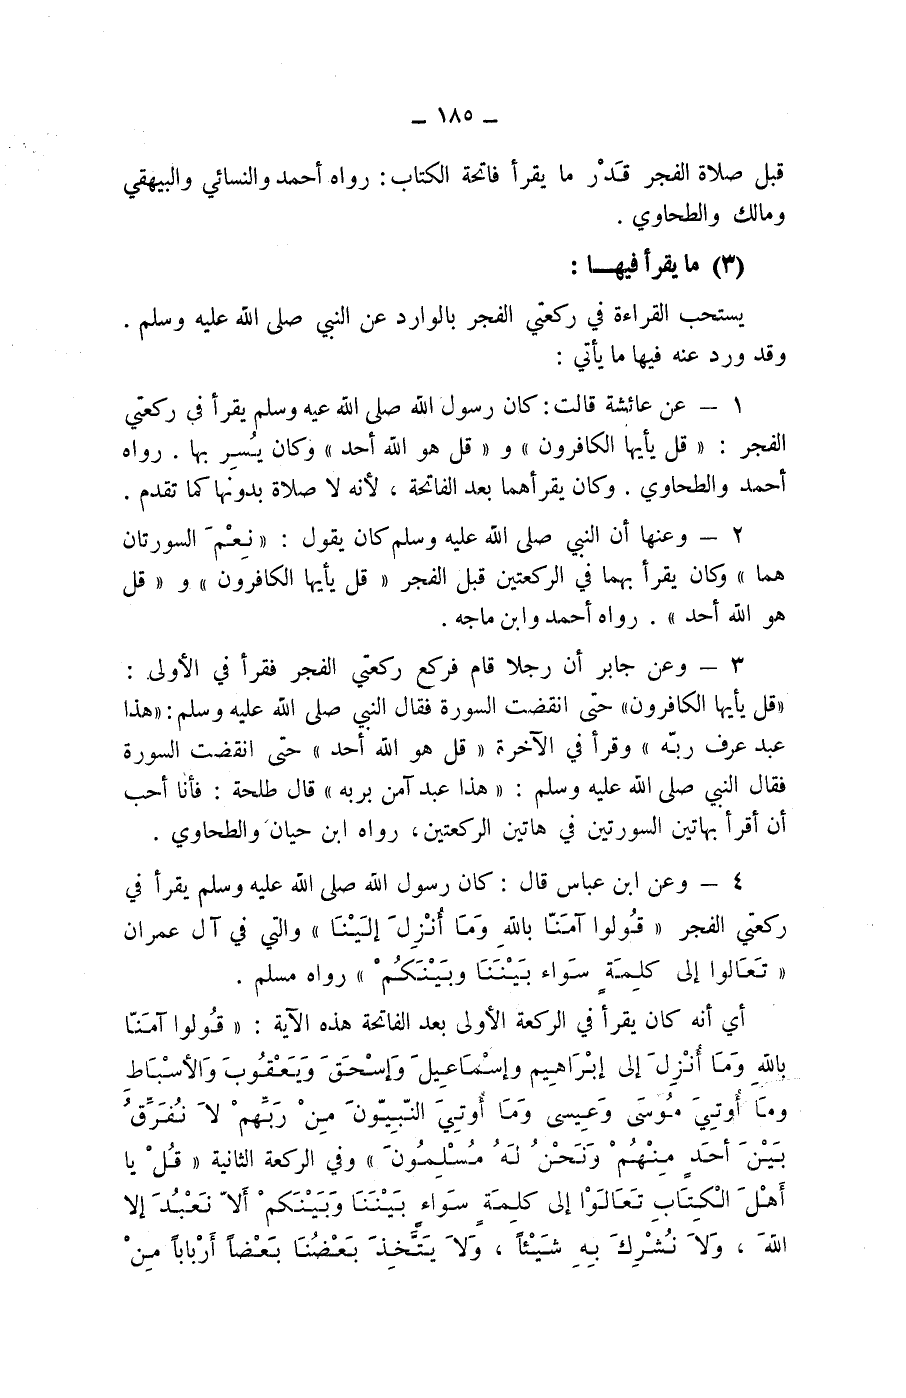 ـ ١٨٥ ـ
قبل صلاة الفجر قَدْر ما يقرأ فاتحة الكتاب: رواه أحمد والنسائي والبيهقي
ومالك والطحاوي .
(٣) ما يقرأ فيهـا :
يستحب القراءة في ركعتي الفجر بالوارد عن النبي صلى الله عليه وسلم .
وقد ورد عنه فيها ما يأتي :
١ ـ عن عائشة قالت: كان رسول الله صلى الله عيه وسلم يقرأ في ركعتي
الفجر : « قل يأيها الكافرون » و « قل هو الله أحد » وكان يُسِر بها . رواه
أحمد والطحاوي . وكان يقرأهما بعد الفاتحة ، لأنه لا صلاة بدونها كما تقدم .
٢ ـ وعنها أن النبي صلى الله عليه وسلم كان يقول : « نِعْمَ السورتان
هما » وكان يقرأ بهما في الركعتين قبل الفجر « قل يأيها الكافرون » و « قل
هو الله أحد » . رواه أحمد وابن ماجه .
٣ ـ وعن جابر أن رجلا قام فركع ركعتي الفجر فقرأ في الأولى :
«قل يأيها الكافرون» حتى انقضت السورة فقال النبي صلى الله عليه وسلم: «هذا
عبد عرف ربّه » وقرأ في الآخرة « قل هو الله أحد » حتى انقضت السورة
فقال النبي صلى الله عليه وسلم : « هذا عبد آمن بربه » قال طلحة : فأنا أحب
أن أقرأ بهاتين السورتين في هاتين الركعتين، رواه ابن حيان والطحاوي .
٤ ـ وعن ابن عباس قال : كان رسول الله صلى الله عليه وسلم يقرأ في
ركعتي الفجر « قُولوا آمَنّا بالله وَمَا أُنْزِلَ إلَيْنَا » والتي في آل عمران
« تَعَالوا إلى كلِمَةٍ سَوَاء بَيْنَنَا وبَيْنَكُمْ » رواه مسلم .
أي أنه كان يقرأ في الركعة الأولى بعد الفاتحة هذه الآية : « قُولوا آمَنّا
بالله وَمَا أُنْزِلَ إلى إبْرَاهيم وإسْمَاعيلَ وَإسْحَقَ وَيَعْقُوبَ وَالأسْبَاط
ومَا أُوتيَ مُوسَى وَعيسى وَمَا أُوتيَ النّبيّونَ مِنْ رَبِّهِمْ لاَ نُفَرِّقُ
بَيْنَ أحَدٍ مِنْهُمْ وَنَحْنُ لَهُ مُسْلِمُونَ » وفي الركعة الثانية « قُلْ يا
أهْلَ الْكِتَابِ تَعَالَوْا إلى كلِمَةٍ سَوَاءٍ بَيْنَنَا وَبَيْنَكمْ ألاّ نَعْبُدَ إلا
اللهَ ، وَلاَ نُشْرِكَ بِهِ شَيْئاً ، وَلاَ يَتَّخِذَ بَعْضُنَا بَعْضاً أرْبَاباً مِنْ